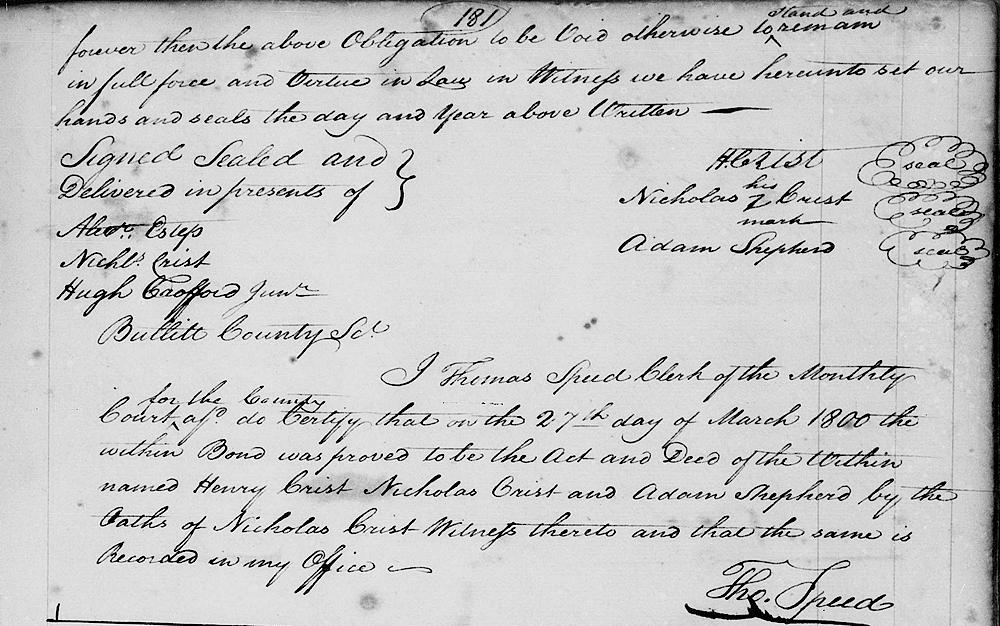 181
forever then the above Obligation to be Void otherwise to stand and remain
in full force and Virtue in Law in Witness we have hereunto set our
hands and seals the day and Year above Written
Signed Sealed and
Delivered in presents of
H. Crist seal
Nicholas his mark Crist seal
Adam Shepherd seal
Alexr. Estep
Nichls. Crist
Hugh Crofford Junr.
Bullitt County Sct.
I Thomas Speed Clerk of the Monthly
Court for the County afsd. do Certify that on the 27th day of March 1800 the
within Bond was proved to be the Act and Deed of the Within
named Henry Crist Nicholas Crist and Adam Shepherd by the
Oaths of Nicholas Crist Witness thereto and that the same is
Recorded in my Office
Tho. Speed